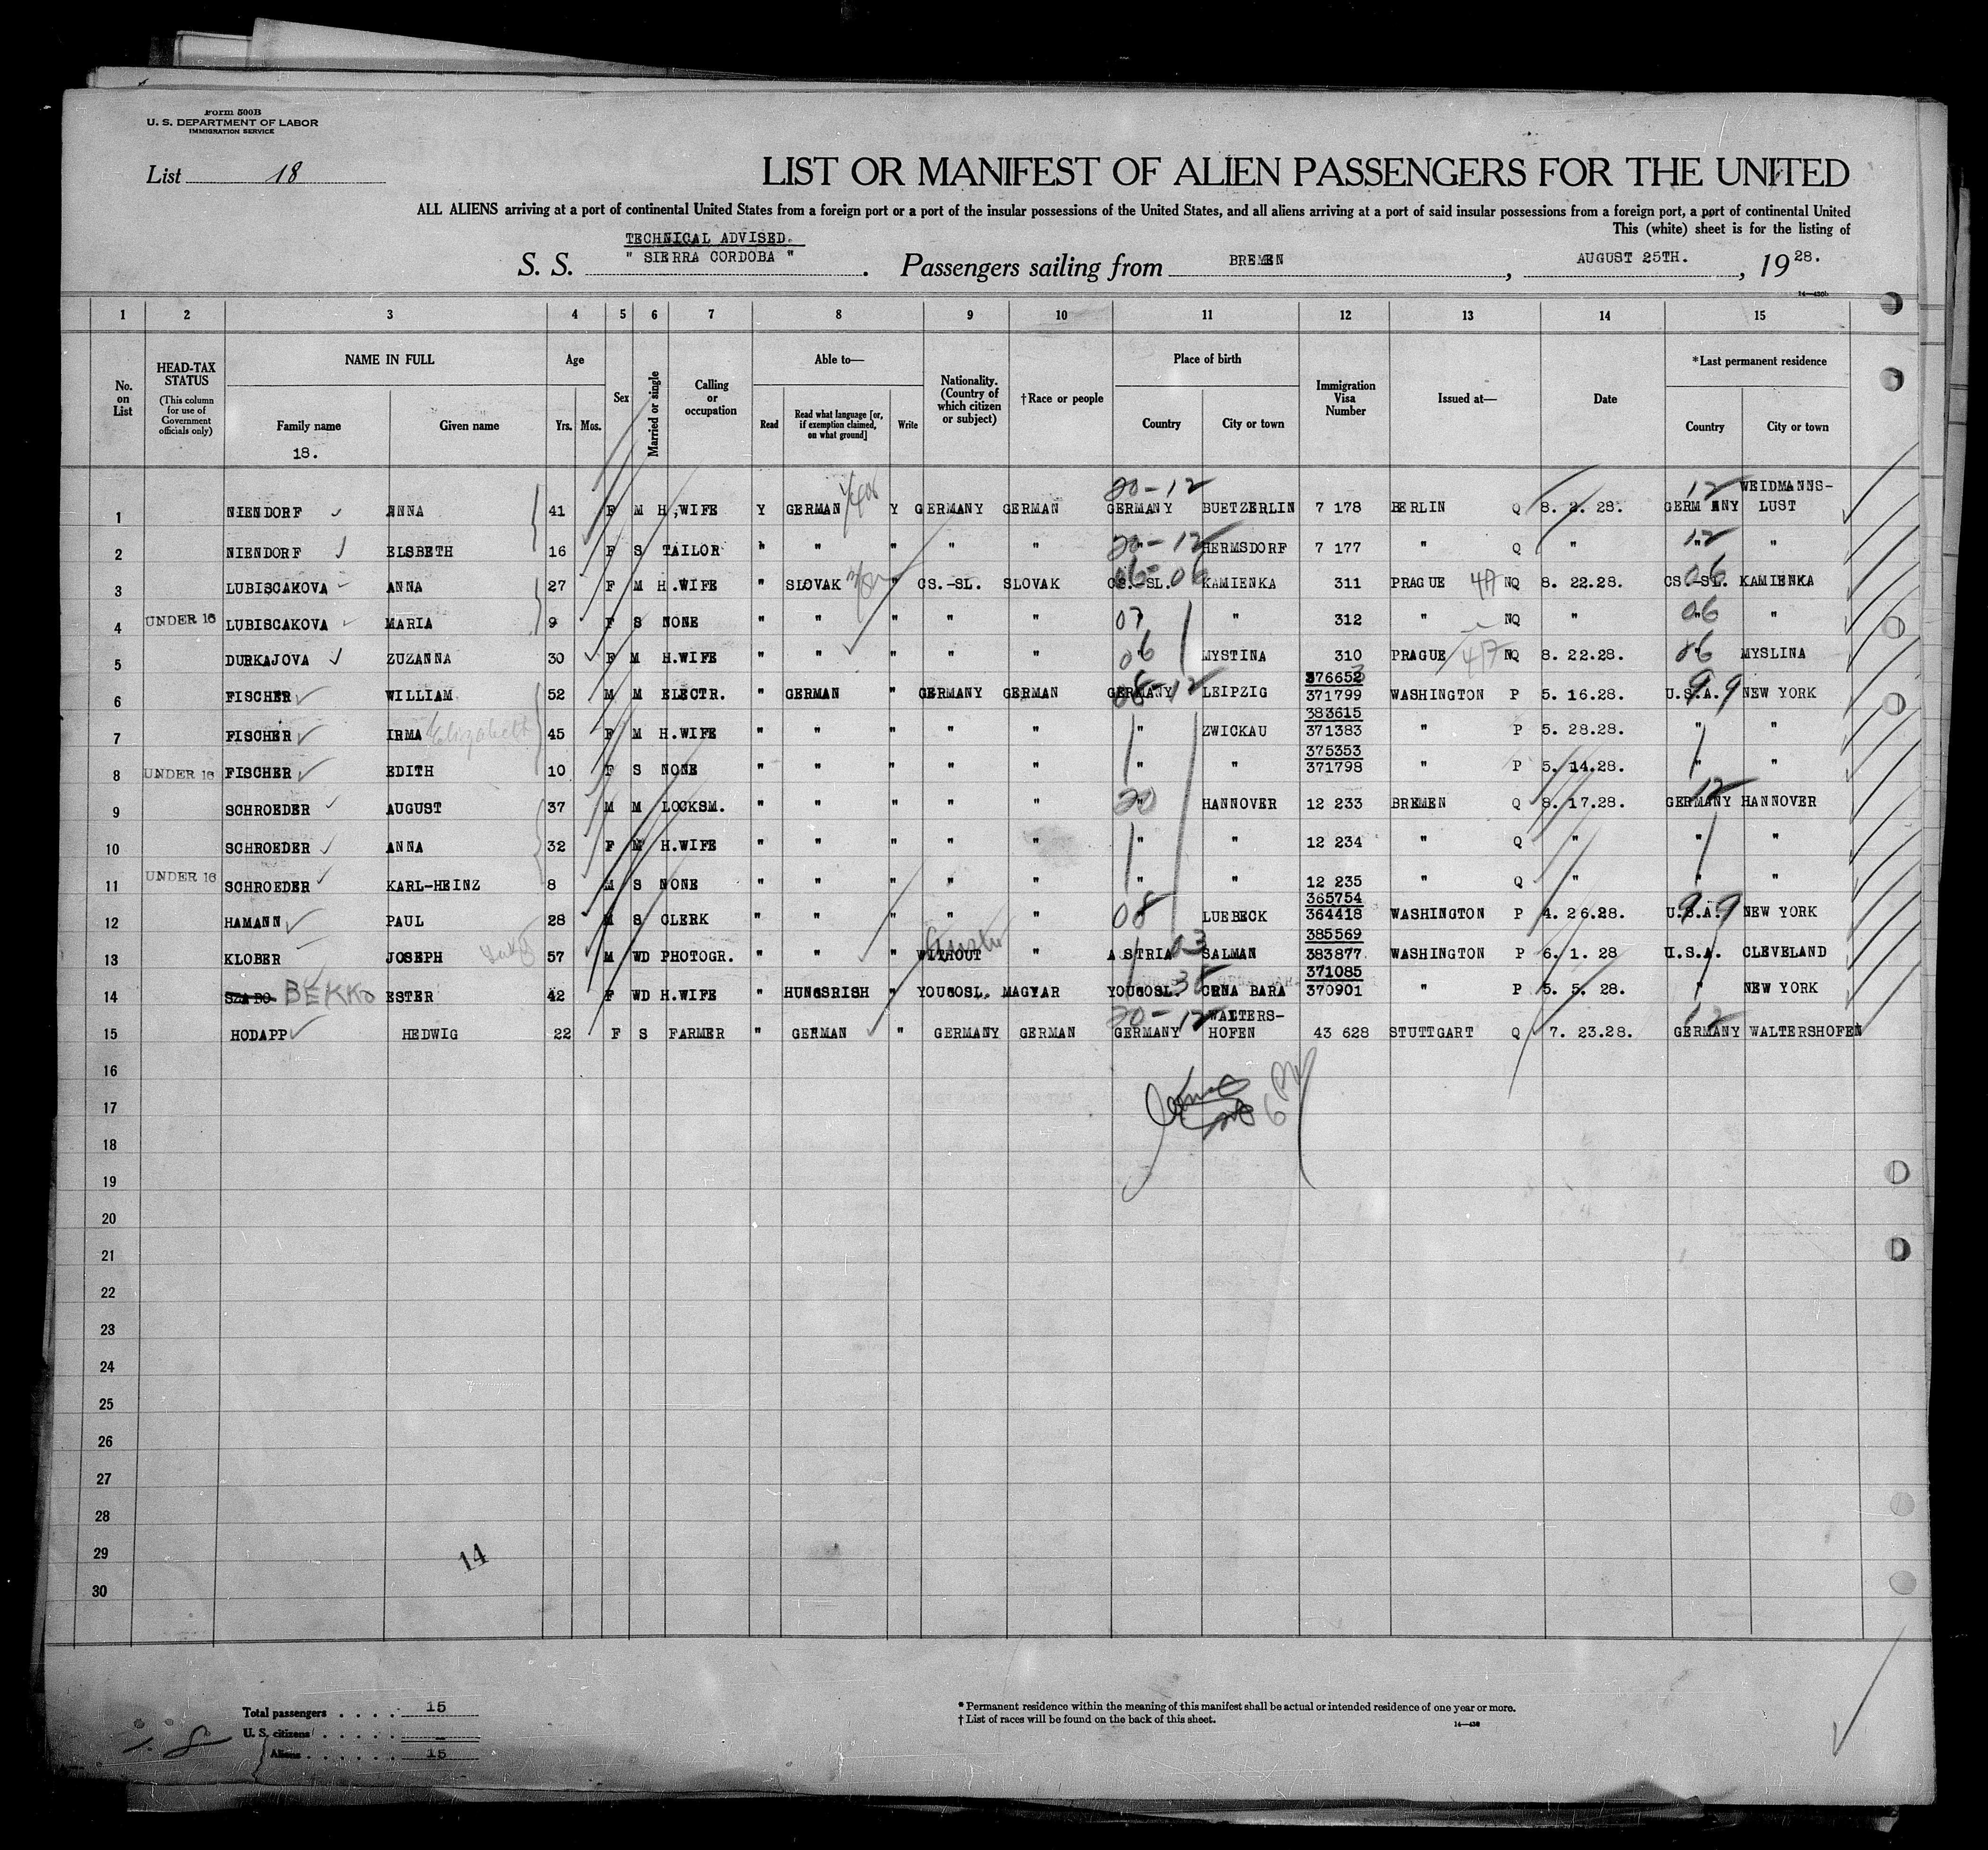 Form 500B
U. S. DEPARTMENT OF LABOR
IMMIGRATION SERVICE
List 18
LIST OR MANIFEST OF ALIEN PASSENGERS FOR THE UNITED
ALL ALIENS arriving at a port of continental United States from a foreign port or a port of the insular possessions of the United States, and all aliens arriving at a port of said insular possessions from a foreign port, a port of continental United
This (white) sheet is for the listing of
TECHNICAL ADVISED.
S. S. " SIERRA CORDOBA " . Passengers sailing from BREMEN , AUGUST 25TH. , 19 28.
14—430b
1 2 3 4 5 6 7 8 9 10 11 12 13 14 15
No. on List
HEAD-TAX STATUS
(This column for use of Government officials only)
NAME IN FULL
Family name Given name
18.
Age
Yrs. Mos.
Sex
Married or single
Calling or occupation
Able to—
Read
Read what language [or, if exemption claimed, on what ground]
Write
Nationality. (Country of which citizen or subject)
†Race or people
Place of birth
Country City or town
Immigration Visa Number
Issued at—
Date
*Last permanent residence
Country City or town
20-12 12 WEIDMANNS-
1 NIENDORF ANNA 41 F M H,WIFE Y GERMAN Y GERMANY GERMAN GERMANY BUETZERLIN 7 178 BERLIN Q 8. 2. 28. GERMANY LUST
2 NIENDORF ELSBETH 16 F S TAILOR " " " " " 20-12 " HERMSDORF 7 177 " Q " 12 " "
3 LUBISCAKOVA ANNA 27 F M H.WIFE " SLOVAK " CS.-SL. SLOVAK CS.-SL. 06-06 KAMIENKA 311 PRAGUE NQ 8. 22.28. CS.-SL. 06 KAMIENKA
4 UNDER 16 LUBISCAKOVA MARIA 9 F S NONE " " " " " 07 " 312 " NQ " 06 " "
5 DURKAJOVA ZUZANNA 30 F M H.WIFE " " " " " 06 " MYSTINA 310 PRAGUE NQ 8. 22.28. 06 " MYSLINA
376652
6 FISCHER WILLIAM 52 M M ELECTR. " GERMAN " GERMANY GERMAN GERMANY 08-12 LEIPZIG 371799 WASHINGTON P 5. 16.28. U.S.A. 99 NEW YORK
383615
7 FISCHER IRMA Elizabeth 45 F M H.WIFE " " " " " " ZWICKAU 371383 " P 5. 28.28. " "
375353
8 UNDER 16 FISCHER EDITH 10 F S NONE " " " " " " " 371798 " P 5. 14.28. " "
9 SCHROEDER AUGUST 37 M M LOCKSM. " " " " " 20 " HANNOVER 12 233 BREMEN Q 8. 17.28. GERMANY 12 HANNOVER
10 SCHROEDER ANNA 32 F M H.WIFE " " " " " " " 12 234 " Q " " "
11 UNDER 16 SCHROEDER KARL-HEINZ 8 M S NONE " " " " " " " 12 235 " Q " " "
365754
12 HAMANN PAUL 28 M S CLERK " " " " " 08 LUEBECK 364418 WASHINGTON P 4. 26.28. U.S.A. 99 NEW YORK
385569
13 KLOBER JOSEPH 57 M WD PHOTOGR. " " " WITHOUT " A STRIA 03 SALMAN 383877 WASHINGTON P 6. 1. 28 U.S.A. CLEVELAND
371085
14 SZABO BEKKO ESTER 42 F WD H.WIFE " HUNGSRISH " YOUGOSL. MAGYAR YOUGOSL. CRNA BARA 370901 " P 5. 5. 28. " NEW YORK
20-12 WALTERS- 12
15 HODAPP HEDWIG 22 F S FARMER " GERMAN " GERMANY GERMAN GERMANY HOFEN 43 628 STUTTGART Q 7. 23.28. GERMANY WALTERSHOFEN
16
17
18
19
20
21
22
23
24
25
26
27
28
29
14
30
Total passengers . . . . 15
U. S. citizens . . . . . -
Aliens . . . . . . 15
* Permanent residence within the meaning of this manifest shall be actual or intended residence of one year or more.
† List of races will be found on the back of this sheet.
14—430